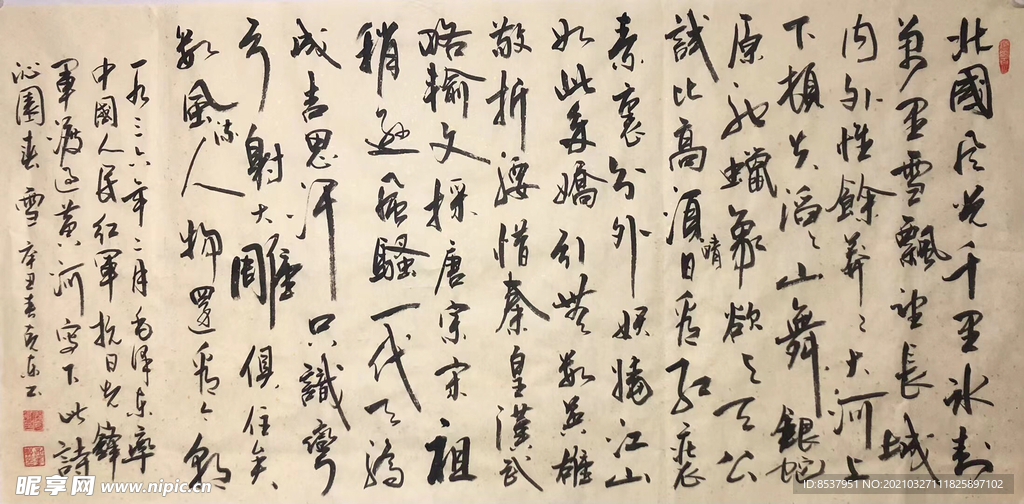 北國风光千里冰封
萬里雪飄望長城
内外惟餘莽々大河上
下頓失滔々山舞銀蛇
原馳蠟象欲与天公
試比高須晴日看紅裝
素裹分外妖嬈江山
如此多嬌引無數英雄
敬折腰惜秦皇漢武
略輸文採唐宗宋祖
稍遜風騷一代天驕
成吉思汗只識彎
弓射大雕俱往矣
數風流人物還看今朝
一九三六年二月毛澤东率
中國人民红軍抗日先鋒
軍渡过黄河寫下此詩
沁園春雪 辛丑春
昵享网 www.nipic.cn
ID:8537951 NO:20210327111825897102